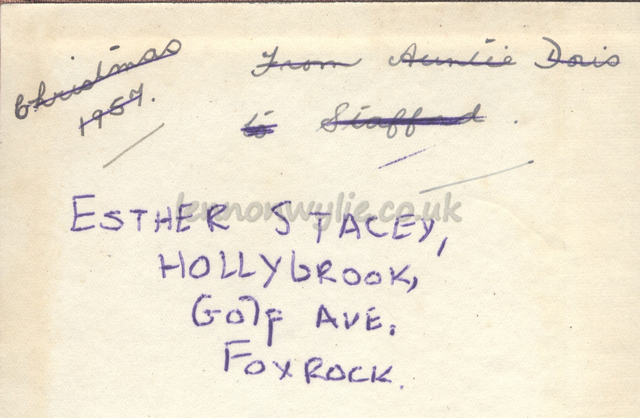 Christmas
1957.
From Auntie Doris
to Stafford.
lennonwylie.co.uk
ESTHER STACEY,
HOLLYBROOK,
Golf AVE.
FOXROCK.